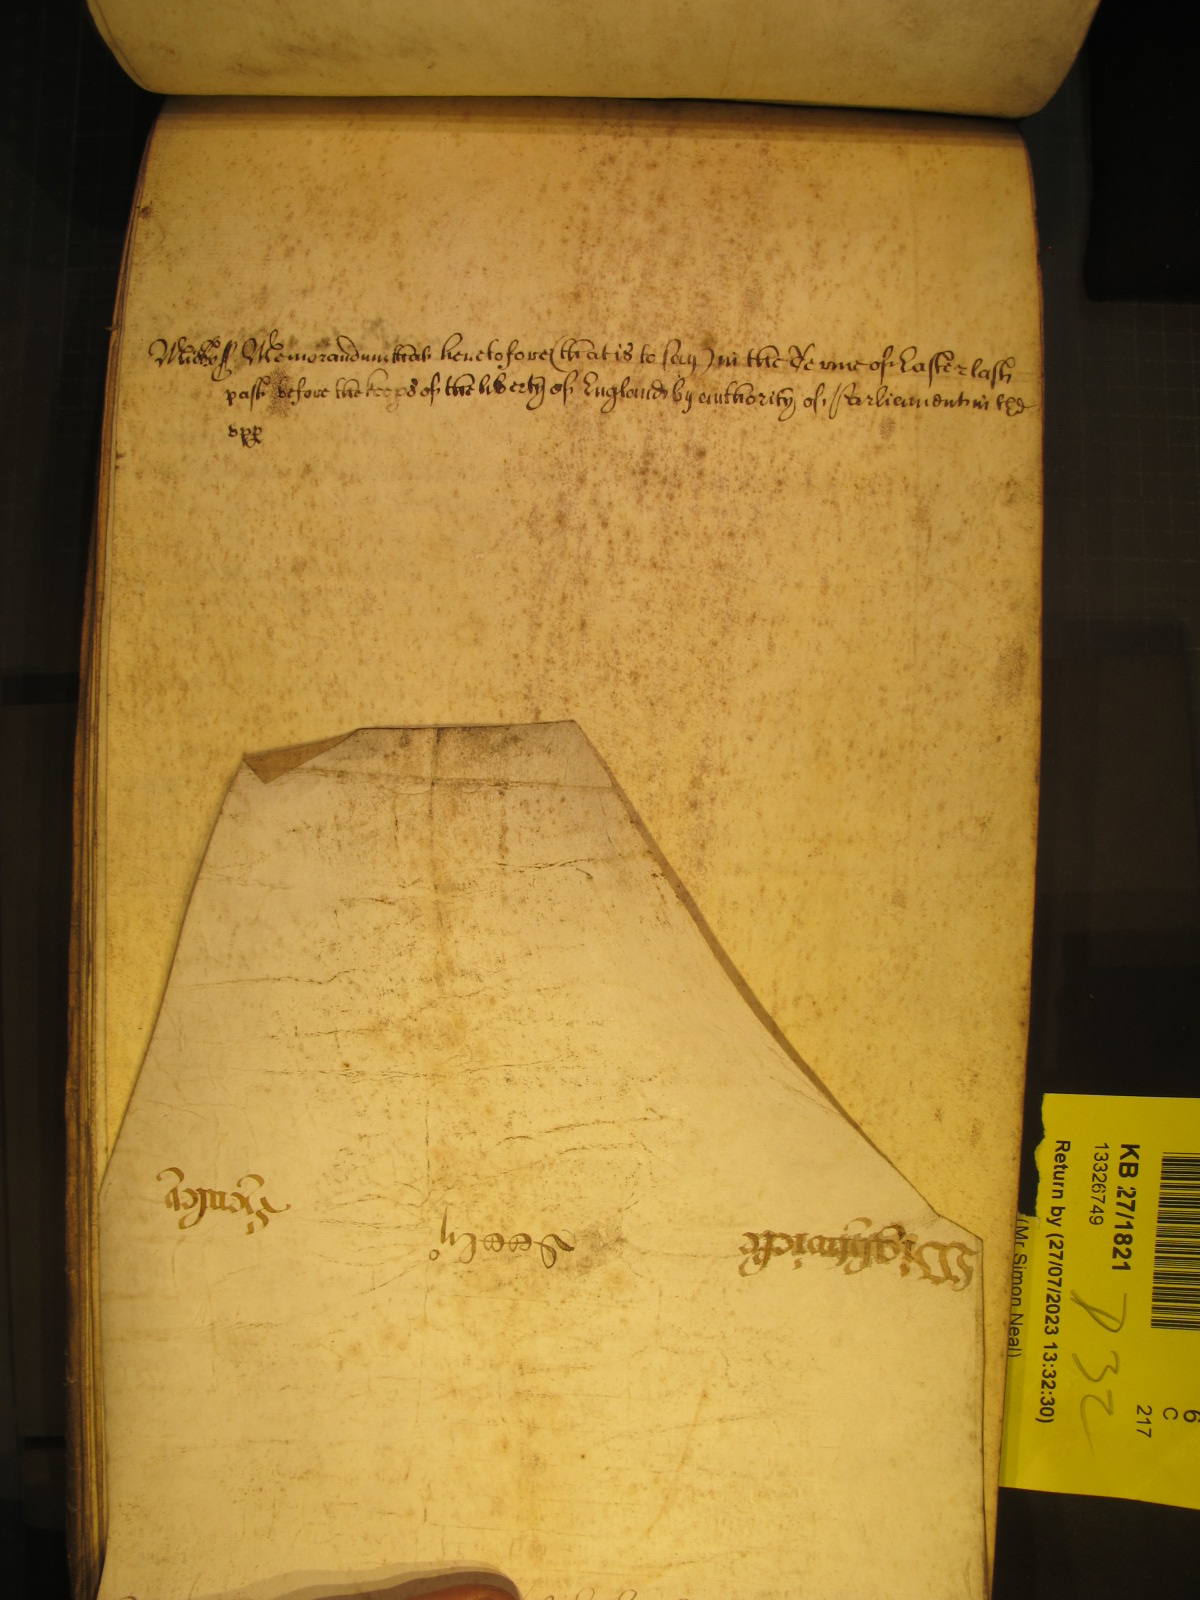 Midds ss Memorandum that heretofore (that is to say) in the Terme of Easter last
past before the keeps of the liberty of England by authority of Parliament in the
upp
Henley
Seely
Wightwicke
KB 27/1821
13326749
Return by (27/07/2023 13:32:30)
(Mr Simon Neal)
6
C
217
D 32